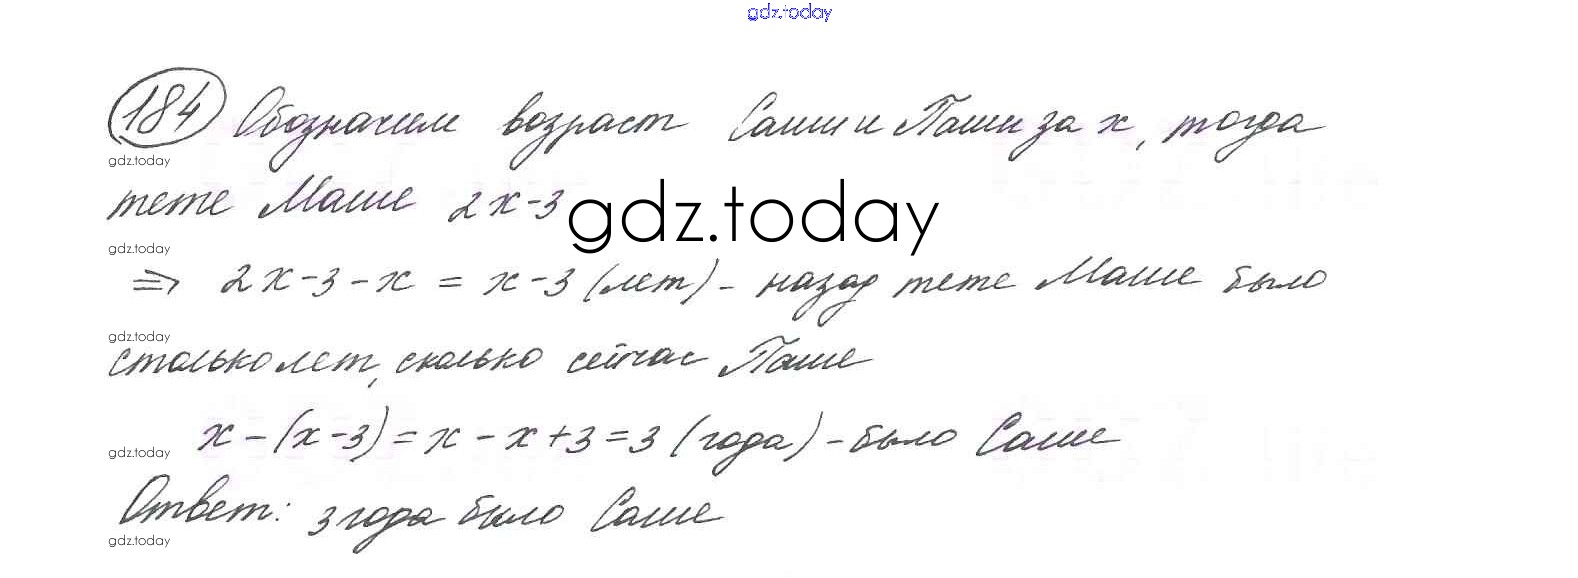 gdz.today
184 Обозначим возраст Саши и Паши за x, тогда
gdz.today
тете Маше 2x-3
gdz.today
gdz.today
⇒ 2x-3-x = x-3 (лет) - назад тете Маше было
gdz.today
столько лет, сколько сейчас Паше
x-(x-3)=x-x+3=3 (года) - было Саше
gdz.today
Ответ: 3 года было Саше
gdz.today